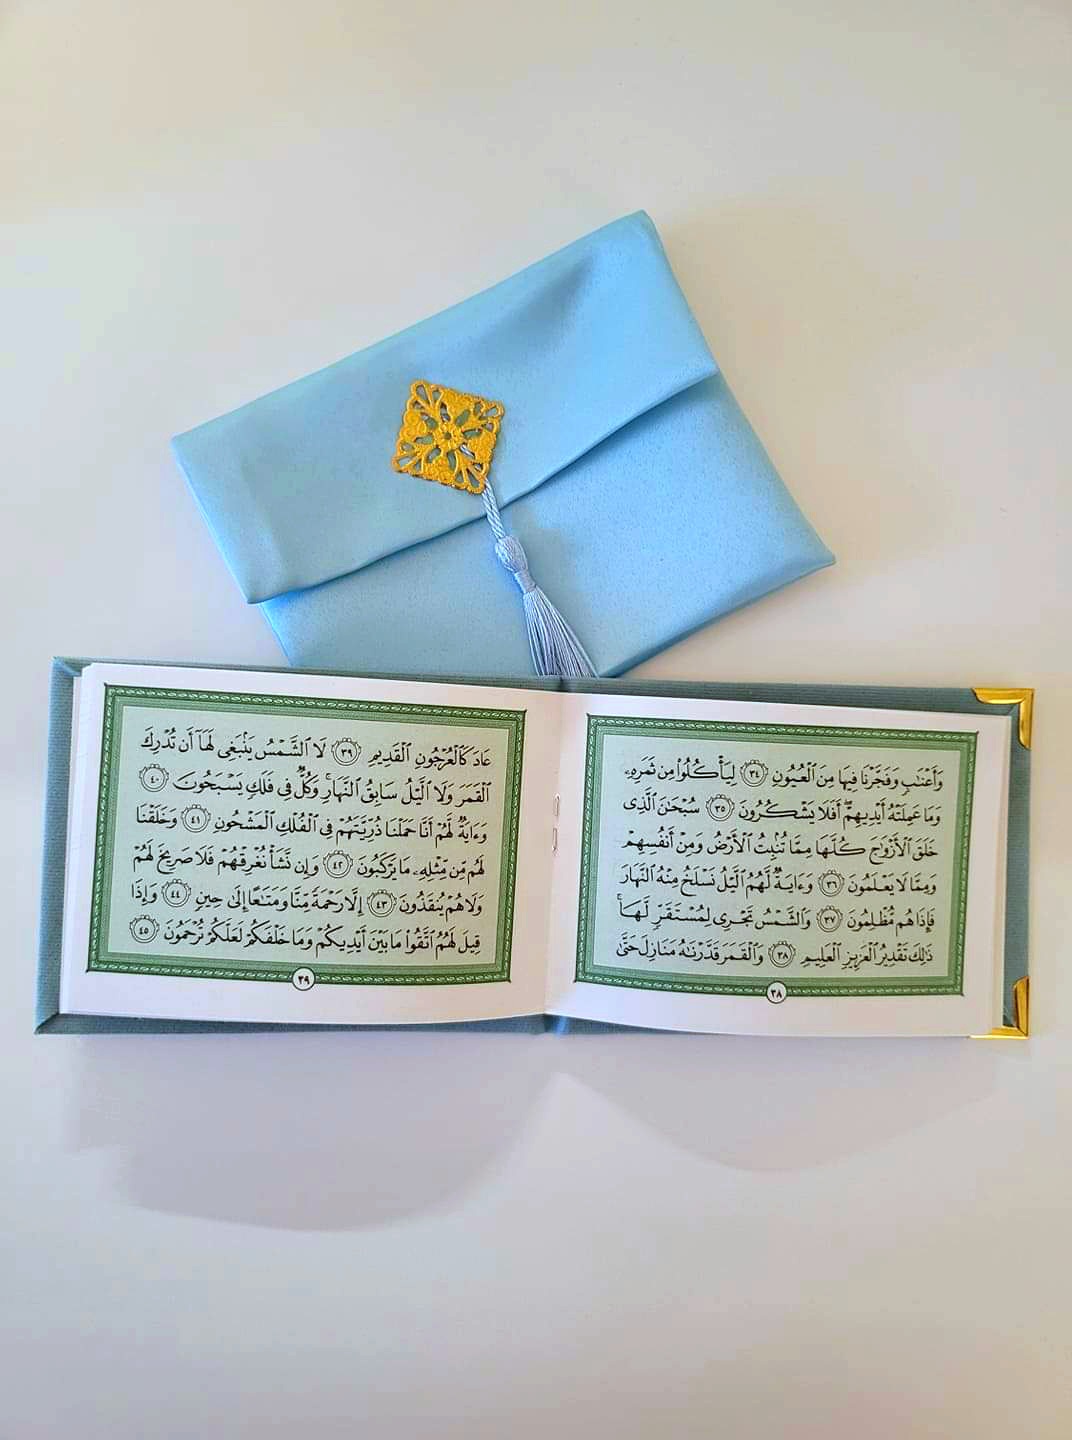 وَأَعْنَٰبٍ وَفَجَّرْنَا فِيهَا مِنَ ٱلْعُيُونِ ٣٤ لِيَأْكُلُوا۟ مِن ثَمَرِهِۦ
وَمَا عَمِلَتْهُ أَيْدِيهِمْ ۖ أَفَلَا يَشْكُرُونَ ٣٥ سُبْحَٰنَ ٱلَّذِى
خَلَقَ ٱلْأَزْوَٰجَ كُلَّهَا مِمَّا تُنۢبِتُ ٱلْأَرْضُ وَمِنْ أَنفُسِهِمْ
وَمِمَّا لَا يَعْلَمُونَ ٣٦ وَءَايَةٌ لَّهُمُ ٱلَّيْلُ نَسْلَخُ مِنْهُ ٱلنَّهَارَ
فَإِذَا هُم مُّظْلِمُونَ ٣٧ وَٱلشَّمْسُ تَجْرِى لِمُسْتَقَرٍّ لَّهَا ۚ
ذَٰلِكَ تَقْدِيرُ ٱلْعَزِيزِ ٱلْعَلِيمِ ٣٨ وَٱلْقَمَرَ قَدَّرْنَٰهُ مَنَازِلَ حَتَّىٰ
٣٨
عَادَ كَٱلْعُرْجُونِ ٱلْقَدِيمِ ٣٩ لَا ٱلشَّمْسُ يَنۢبَغِى لَهَآ أَن تُدْرِكَ
ٱلْقَمَرَ وَلَا ٱلَّيْلُ سَابِقُ ٱلنَّهَارِ ۚ وَكُلٌّ فِى فَلَكٍ يَسْبَحُونَ ٤٠
وَءَايَةٌ لَّهُمْ أَنَّا حَمَلْنَا ذُرِّيَّتَهُمْ فِى ٱلْفُلْكِ ٱلْمَشْحُونِ ٤١ وَخَلَقْنَا
لَهُم مِّن مِّثْلِهِۦ مَا يَرْكَبُونَ ٤٢ وَإِن نَّشَأْ نُغْرِقْهُمْ فَلَا صَرِيخَ لَهُمْ
وَلَا هُمْ يُنقَذُونَ ٤٣ إِلَّا رَحْمَةً مِّنَّا وَمَتَٰعًا إِلَىٰ حِينٍ ٤٤ وَإِذَا
قِيلَ لَهُمُ ٱتَّقُوا۟ مَا بَيْنَ أَيْدِيكُمْ وَمَا خَلْفَكُمْ لَعَلَّكُمْ تُرْحَمُونَ ٤٥
٣٩